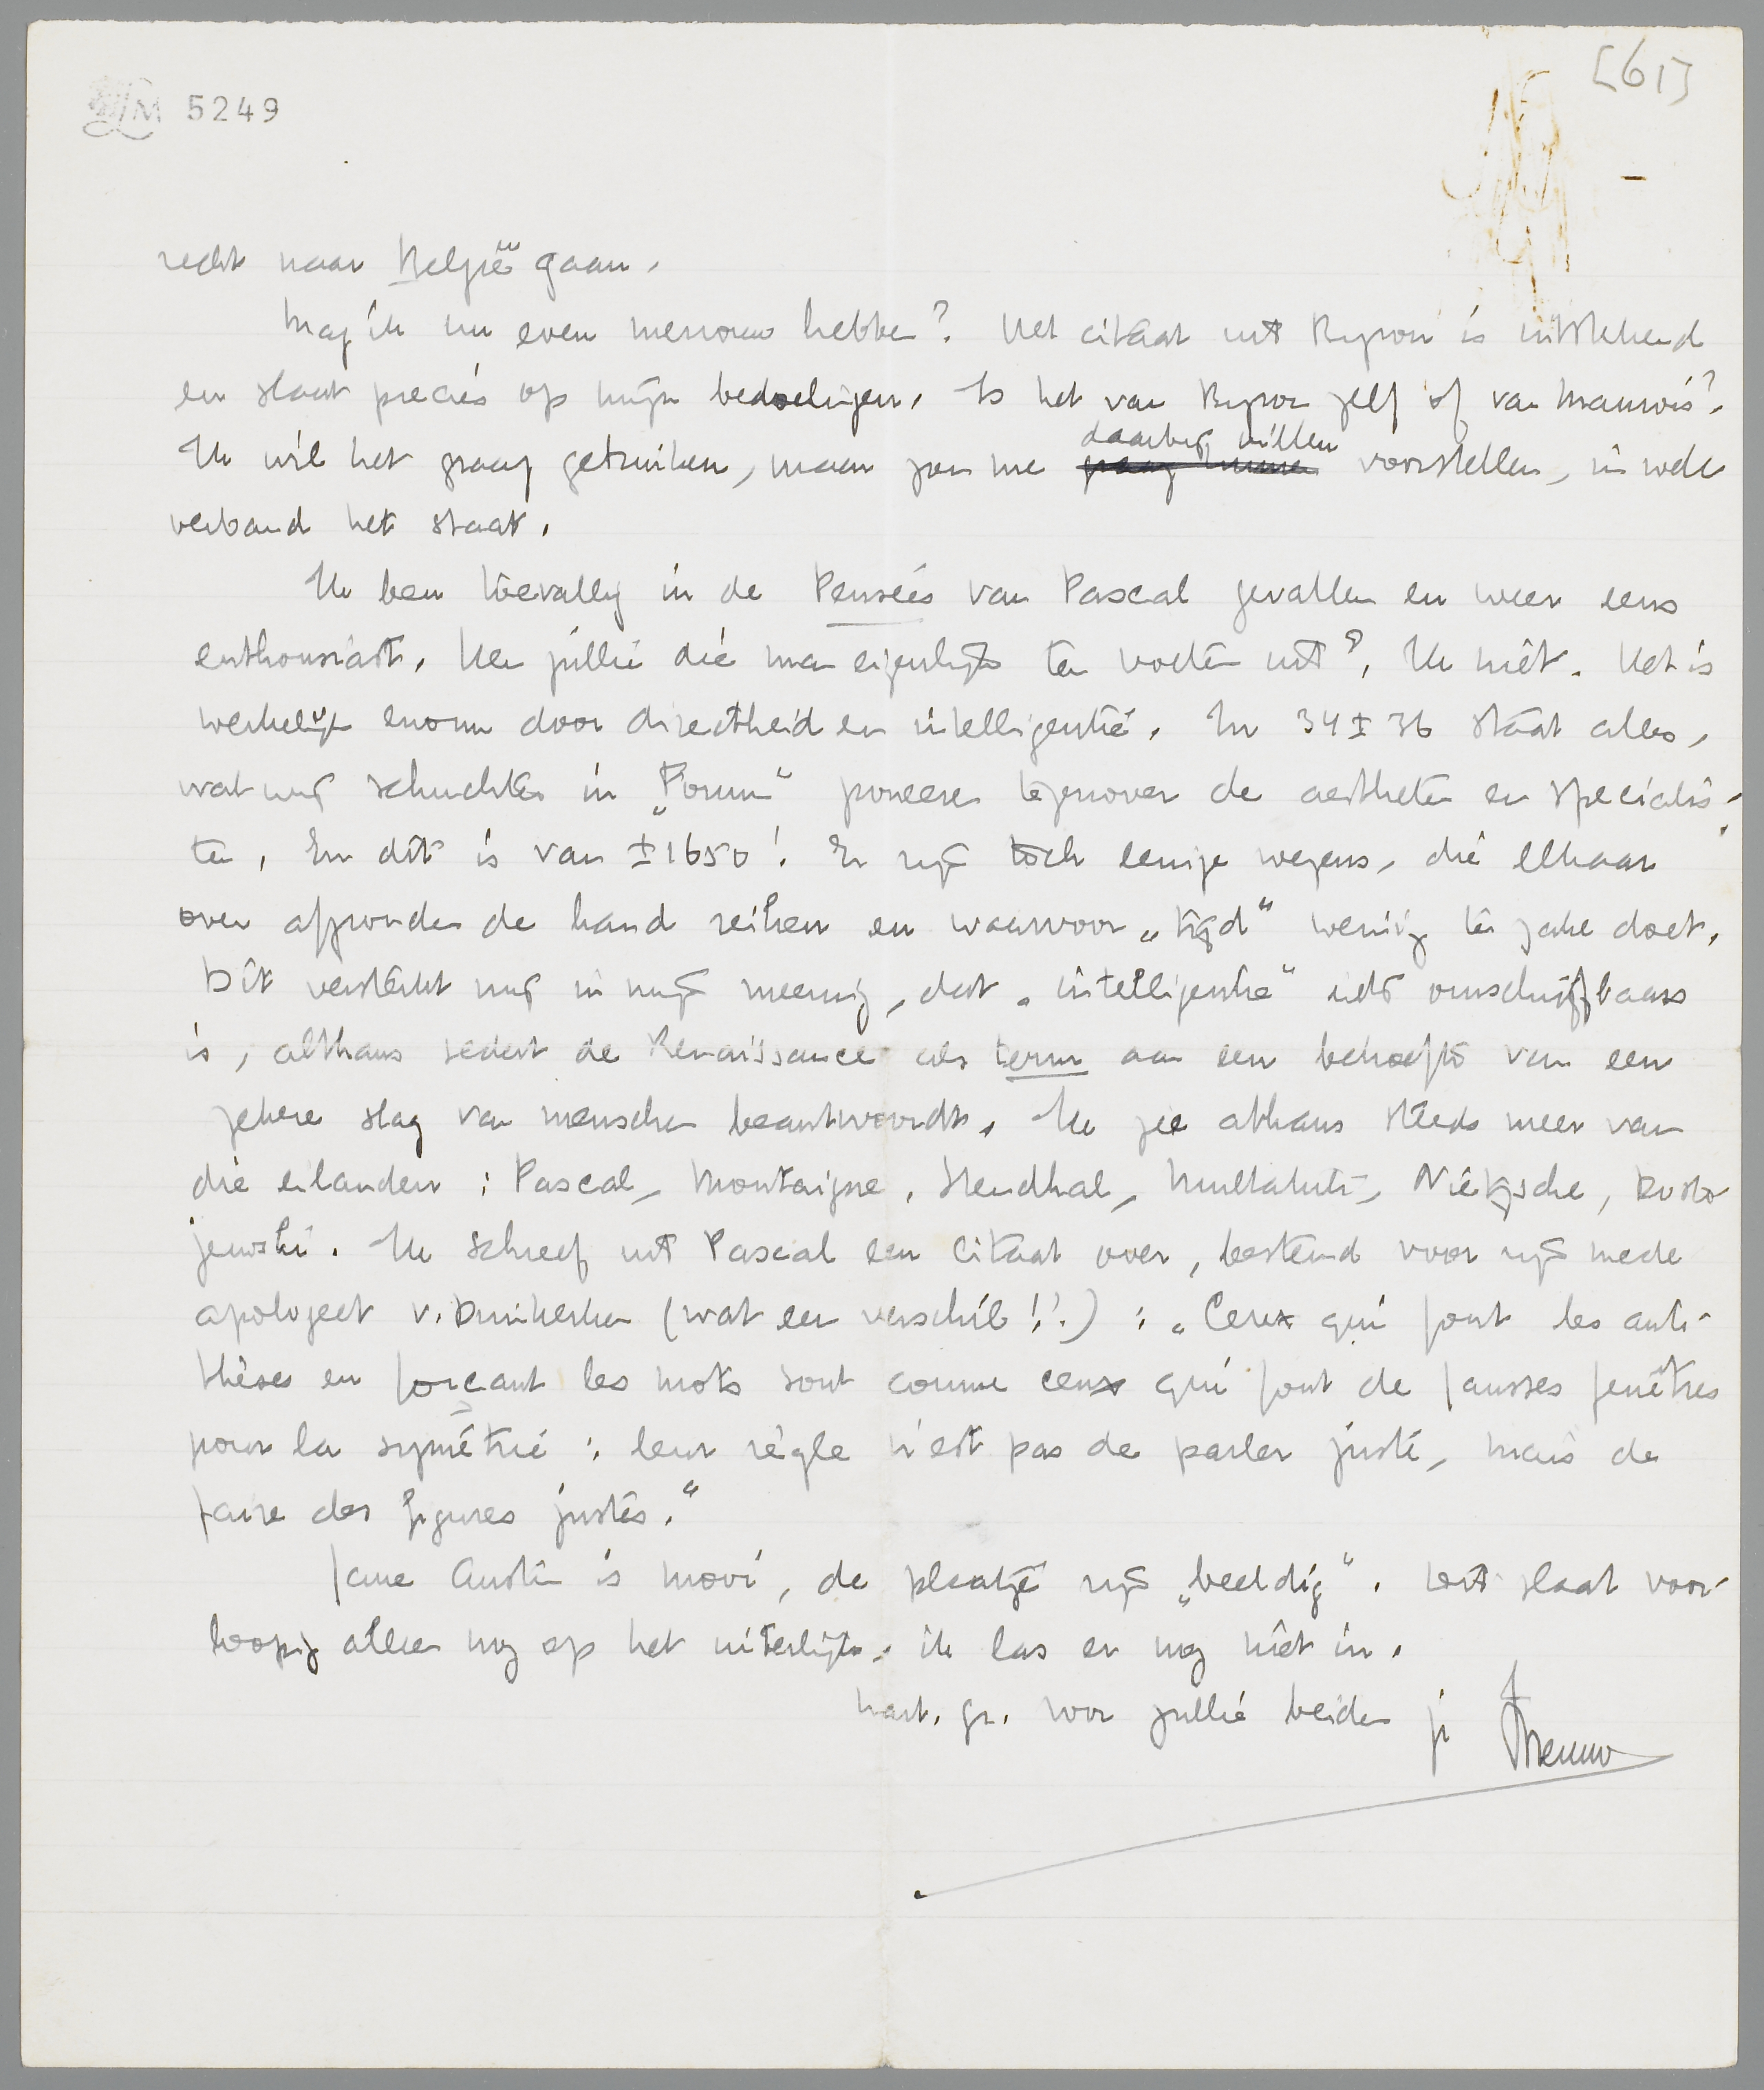 [61]
LM 5249
recht naar België gaan.
Mag ik nu even mevrouw hebben? Het citaat uit Byron is uitstekend
en slaat precies op mijn bedoelingen. Is het van Byron zelf of van Maurois?
Ik wil het graag gebruiken, maar zou me daarbij willen voorstellen, in welk
verband het staat.
Ik ben toevallig in de Pensées van Pascal gevallen en weer eens
enthousiast. Ken jullie die man eigenlijk ten voeten uit? Ik niet. Het is
werkelijk enorm door directheid en intelligentie. In 34 ± 36 staat alles,
wat wij schuchter in „Forum" poneeren tegenover de aestheten en specialis-
ten. En dit is van ± 1650! Er zijn toch eenige wezens, die elkaar
over afgronden de hand reiken en waarvoor „tijd" weinig ter zake doet.
Dit versterkt mij in mijn meening, dat „intelligentie" iets omschrijfbaars
is, althans sedert de Renaissance als term aan een behoefte van een
zekere slag van menschen beantwoordt. Ik zie althans steeds meer van
die eilanden: Pascal, Montaigne, Stendhal, Multatuli, Nietzsche, Dosto-
jewski. Ik schreef uit Pascal een citaat over, bestemd voor zijn mede
apologeet v. Duinkerken (wat een verschil!!): „Ceux qui font les anti-
thèses en forçant les mots sont comme ceux qui font de fausses fenêtres
pour la symétrie: leur règle n'est pas de parler juste, mais de
faire des figures justes."
Jane Austin is mooi, de plaatjes zijn „beeldig". Dit slaat voor-
loopig alleen nog op het uiterlijk, ik las er nog niet in.
hart. gr. voor jullie beiden je Menno